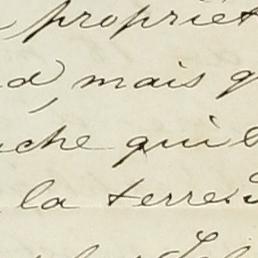 propriét
d, mais q
che qui
la terre.